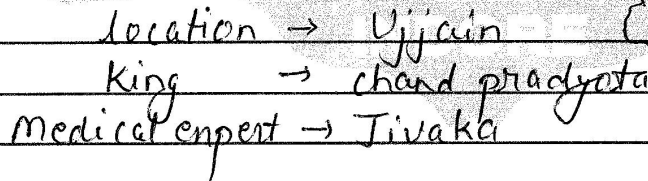 location → Ujjain {
King → chand pradyota
Medical enpert → Jivaka